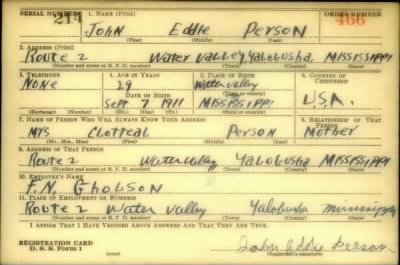 SERIAL NUMBER 214 1. NAME (Print) ORDER NUMBER 466
JOHN Eddie PERSON
(First) (Middle) (Last)
2. ADDRESS (Print)
Route 2 Water Valley, Yalobusha, Mississippi
(Number and street or R. F. D. number) (Town) (County) (State)
3. TELEPHONE 4. AGE IN YEARS 5. PLACE OF BIRTH 6. COUNTRY OF CITIZENSHIP
NONE 29 Water Valley
DATE OF BIRTH
Sept 7 1911 MISSISSIPPI U.S.A.
(Exchange) (Number) (Mo.) (Day) (Yr.) (State or country)
7. NAME OF PERSON WHO WILL ALWAYS KNOW YOUR ADDRESS 8. RELATIONSHIP OF THAT PERSON
MRS Clotteal Person Mother
(Mr., Mrs., Miss) (First) (Middle) (Last)
9. ADDRESS OF THAT PERSON
Route 2 Water Valley Yalobusha Mississippi
(Number and street or R. F. D. number) (Town) (County) (State)
10. EMPLOYER'S NAME
F.N. Gholson
11. PLACE OF EMPLOYMENT OR BUSINESS
Route 2 Water Valley Yalobusha Mississippi
(Number and street or R. F. D. number) (Town) (County) (State)
I AFFIRM THAT I HAVE VERIFIED ABOVE ANSWERS AND THAT THEY ARE TRUE.
REGISTRATION CARD
D. S. S. Form 1 John Eddie Person